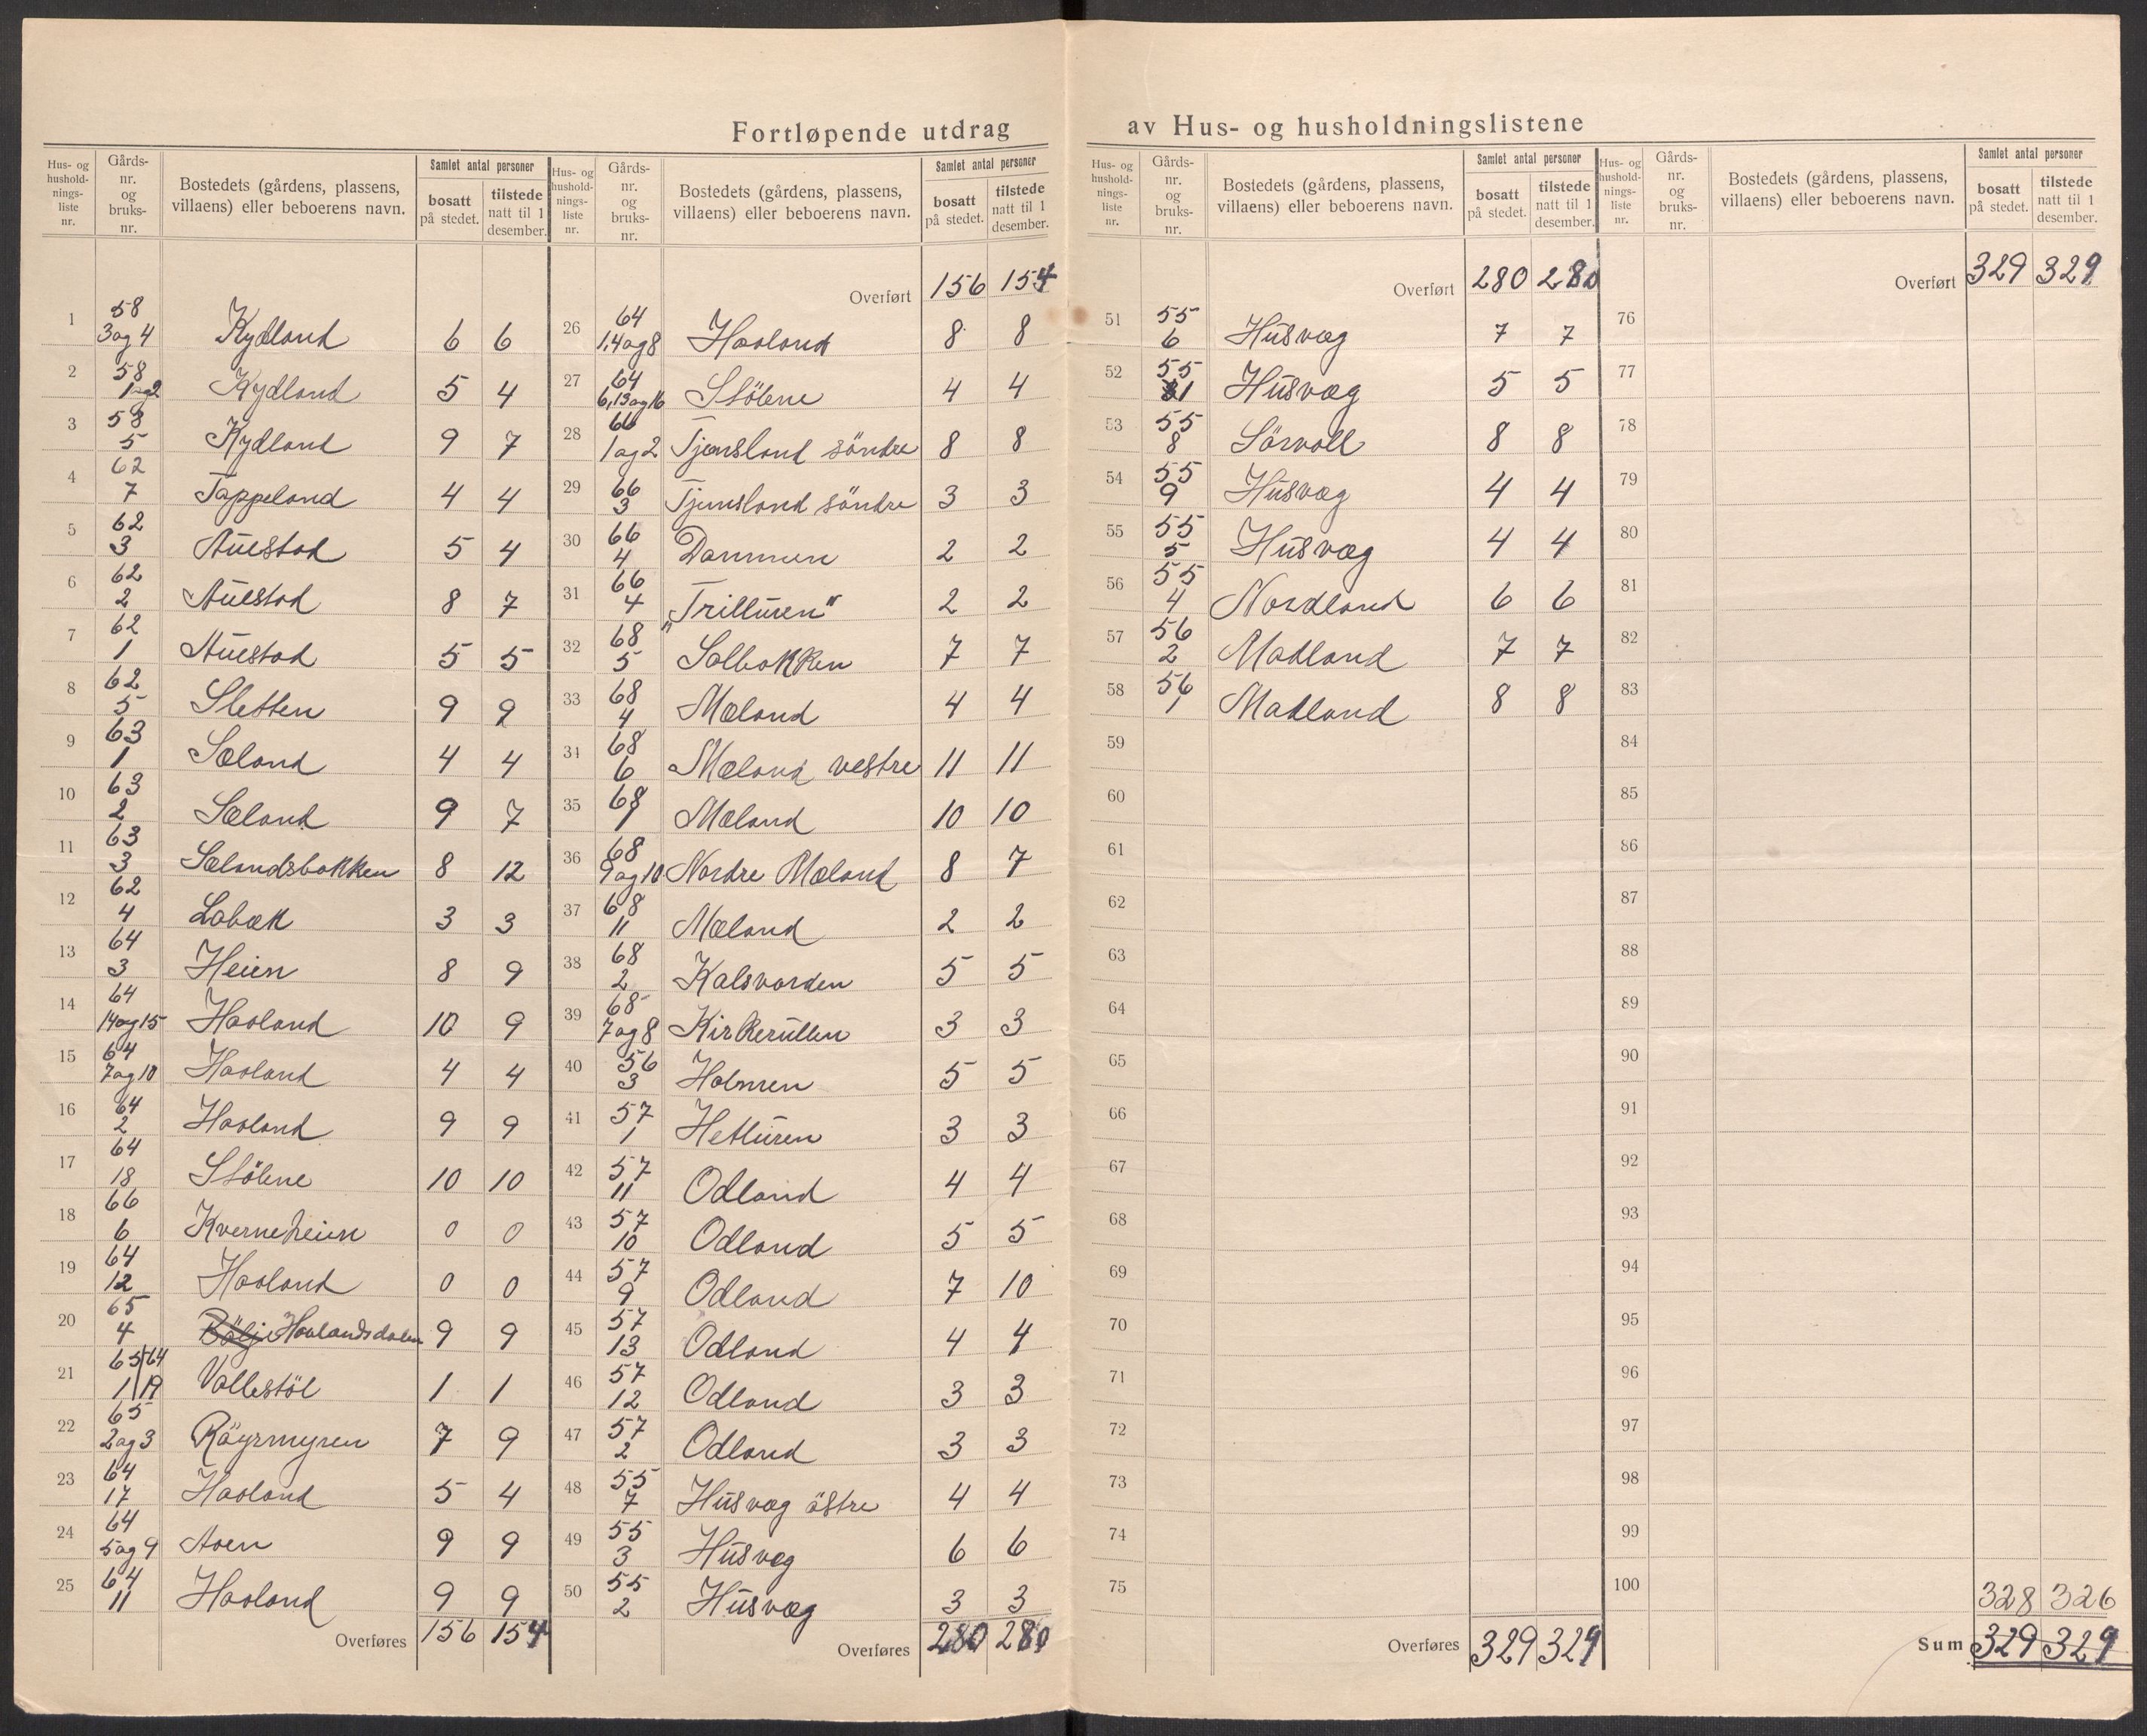 Fortløpende utdrag av Hus- og husholdningslistene
Hus- og hushold-nings-liste nr. | Gårds-nr. og bruks-nr. | Bostedets (gårdens, plassens, villaens) eller beboerens navn. | Samlet antal personer | bosatt på stedet. | tilstede natt til 1 desember.
1 58 3og4 Kydland 6 6
2 58 1og2 Kydland 5 4
3 58 5 Kydland 9 7
4 62 7 Tappeland 4 4
5 62 3 Auestad 5 4
6 62 2 Auestad 8 7
7 62 1 Auestad 5 5
8 62 5 Sletten 9 9
9 63 1 Sæland 4 4
10 63 2 Sæland 9 7
11 63 3 Sælandsbakken 8 12
12 62 4 Labæk 3 3
13 64 3 Heien 8 9
14 64 14og15 Haaland 10 9
15 64 7og10 Haaland 4 4
16 64 2 Haaland 9 9
17 64 18 Stölene 10 10
18 66 6 Kverneheien 0 0
19 64 12 Haaland 0 0
20 65 4 Haalandsdalen 9 9
21 65/64 1/19 Vallestöl 1 1
22 65 2og3 Röyrmyren 7 9
23 64 17 Haaland 5 4
24 64 5og9 Aaen 9 9
25 64 11 Haaland 9 9
Overføres 156 154
Hus- og hushold-nings-liste nr. | Gårds-nr. og bruks-nr. | Bostedets (gårdens, plassens, villaens) eller beboerens navn. | Samlet antal personer | bosatt på stedet. | tilstede natt til 1 desember.
Overført 156 154
26 64 1,4og8 Haaland 8 8
27 64 6,13og16 Stölene 4 4
28 66 1og2 Tjemsland söndre 8 8
29 66 3 Tjemsland söndre 3 3
30 66 4 Dammen 2 2
31 66 4 „Trilluren" 2 2
32 68 5 Solbakken 7 7
33 68 4 Mæland 4 4
34 68 6 Mæland vestre 11 11
35 68 1 Mæland 10 10
36 68 9og10 Nordre Mæland 8 7
37 68 11 Mæland 2 2
38 68 2 Kalsvarden 5 5
39 68 7og8 Kirkerullen 3 3
40 56 3 Holmen 5 5
41 57 1 Hetluren 3 3
42 57 11 Odland 4 4
43 57 10 Odland 5 5
44 57 9 Odland 7 10
45 57 13 Odland 4 4
46 57 12 Odland 3 3
47 57 2 Odland 3 3
48 55 7 Husvæg östre 4 4
49 55 3 Husvæg 6 6
50 55 2 Husvæg 3 3
Overføres 280 280
Hus- og hushold-nings-liste nr. | Gårds-nr. og bruks-nr. | Bostedets (gårdens, plassens, villaens) eller beboerens navn. | Samlet antal personer | bosatt på stedet. | tilstede natt til 1 desember.
Overført 280 280
51 55 6 Husvæg 7 7
52 55 1 Husvæg 5 5
53 55 8 Sörvoll 8 8
54 55 9 Husvæg 4 4
55 55 5 Husvæg 4 4
56 55 4 Nordland 6 6
57 56 2 Madland 7 7
58 56 1 Madland 8 8
59
60
61
62
63
64
65
66
67
68
69
70
71
72
73
74
75
Overføres 329 329
Hus- og hushold-nings-liste nr. | Gårds-nr. og bruks-nr. | Bostedets (gårdens, plassens, villaens) eller beboerens navn. | Samlet antal personer | bosatt på stedet. | tilstede natt til 1 desember.
Overført 329 329
76
77
78
79
80
81
82
83
84
85
86
87
88
89
90
91
92
93
94
95
96
97
98
99
100
328 326
Sum 329 329